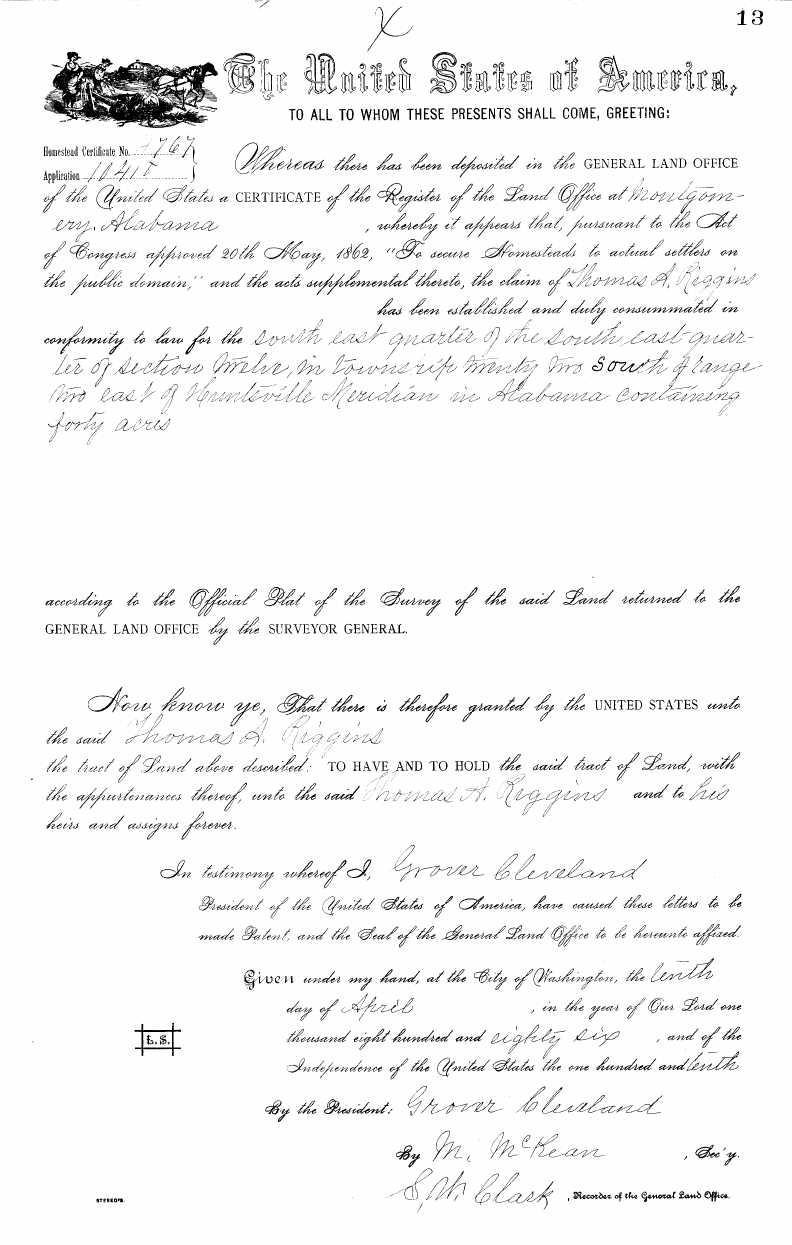 13
The United States of America,
TO ALL TO WHOM THESE PRESENTS SHALL COME, GREETING:
Homestead Certificate No. 4767
Application 10415
Whereas there has been deposited in the GENERAL LAND OFFICE
of the United States a CERTIFICATE of the Register of the Land Office at Montgom-
ery, Alabama , whereby it appears that, pursuant to the Act
of Congress approved 20th May, 1862, "To secure Homesteads to actual settlers on
the public domain," and the acts supplemental thereto, the claim of Thomas A. Riggins
has been established and duly consummated in
conformity to law for the south east quarter of the south east quar-
ter of section twelve, in township twenty two south of range
two east of Huntsville Meridian in Alabama containing
forty acres
according to the Official Plat of the Survey of the said Land returned to the
GENERAL LAND OFFICE by the SURVEYOR GENERAL.
Now know ye, That there is therefore granted by the UNITED STATES unto
the said Thomas A. Riggins
the tract of Land above described: TO HAVE AND TO HOLD the said tract of Land, with
the appurtenances thereof, unto the said Thomas A. Riggins and to his
heirs and assigns forever.
In testimony whereof I, Grover Cleveland
President of the United States of America, have caused these letters to be
made Patent, and the Seal of the General Land Office to be hereunto affixed.
Given under my hand, at the City of Washington, the tenth
day of April , in the year of Our Lord one
L.S. thousand eight hundred and eighty six , and of the
Independence of the United States the one hundred and tenth
By the President: Grover Cleveland
By M. McKean , Sec'y.
S. W. Clark , Recorder of the General Land Office.